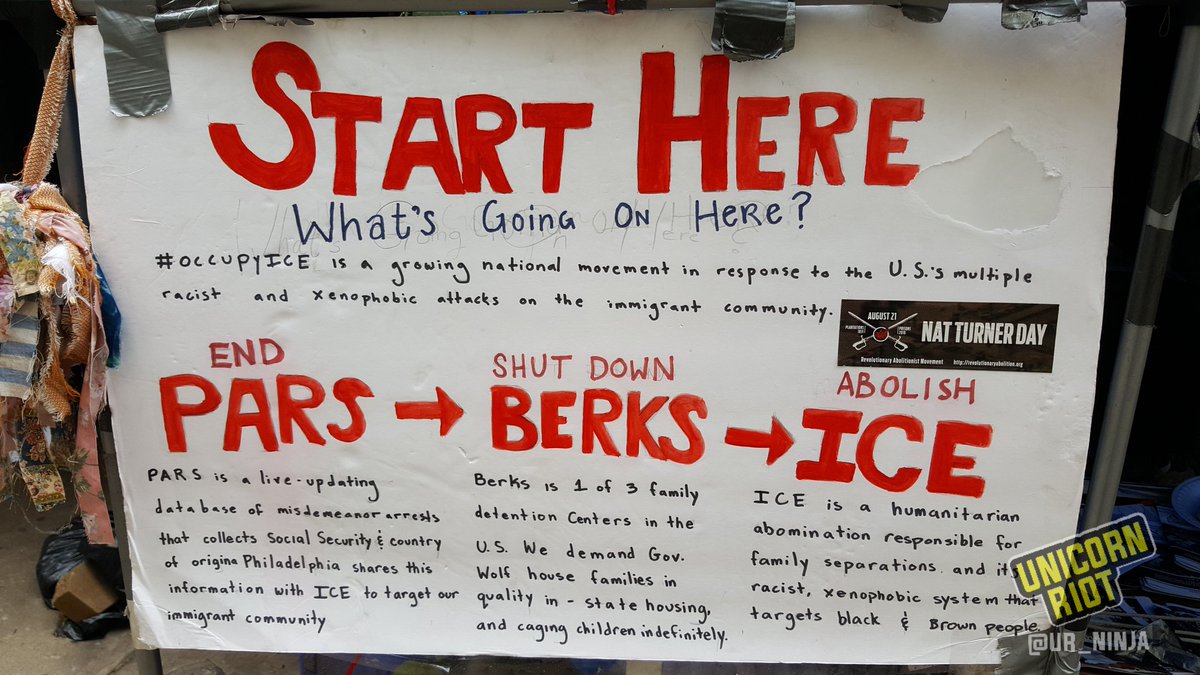 START HERE
WHAT'S GOING ON HERE?
#OCCUPYICE is a growing national movement in response to the U.S.'s multiple
racist and xenophobic attacks on the immigrant community.
AUGUST 21
NAT TURNER DAY
Revolutionary Abolitionist Movement http://revolutionaryabolition.org
END
PARS → 
SHUT DOWN
BERKS →
ABOLISH
ICE
PARS is a live-updating
database of misdemeanor arrests
that collects Social Security & country
of origin. Philadelphia shares this
information with ICE to target our
immigrant community
Berks is 1 of 3 family
detention Centers in the
U.S. We demand Gov.
Wolf house families in
quality in-state housing,
and caging children indefinitely.
ICE is a humanitarian
abomination responsible for
family separations and its
racist, xenophobic system that
targets black & Brown people.
UNICORN
RIOT
@UR_NINJA